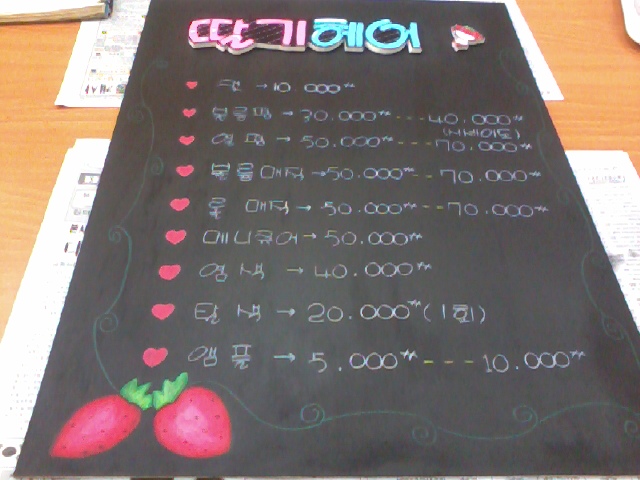 딸기헤어
컷 →10.000원
볼륨펌→30.000원---40.000원
열펌→50.000원---70.000원
볼륨매직→50.000원---70.000원
매직→50.000원---70.000원
메니큐어→50.000원
염색→40.000원
탈색→20.000원(1회)
앰플→5.000원---10.000원